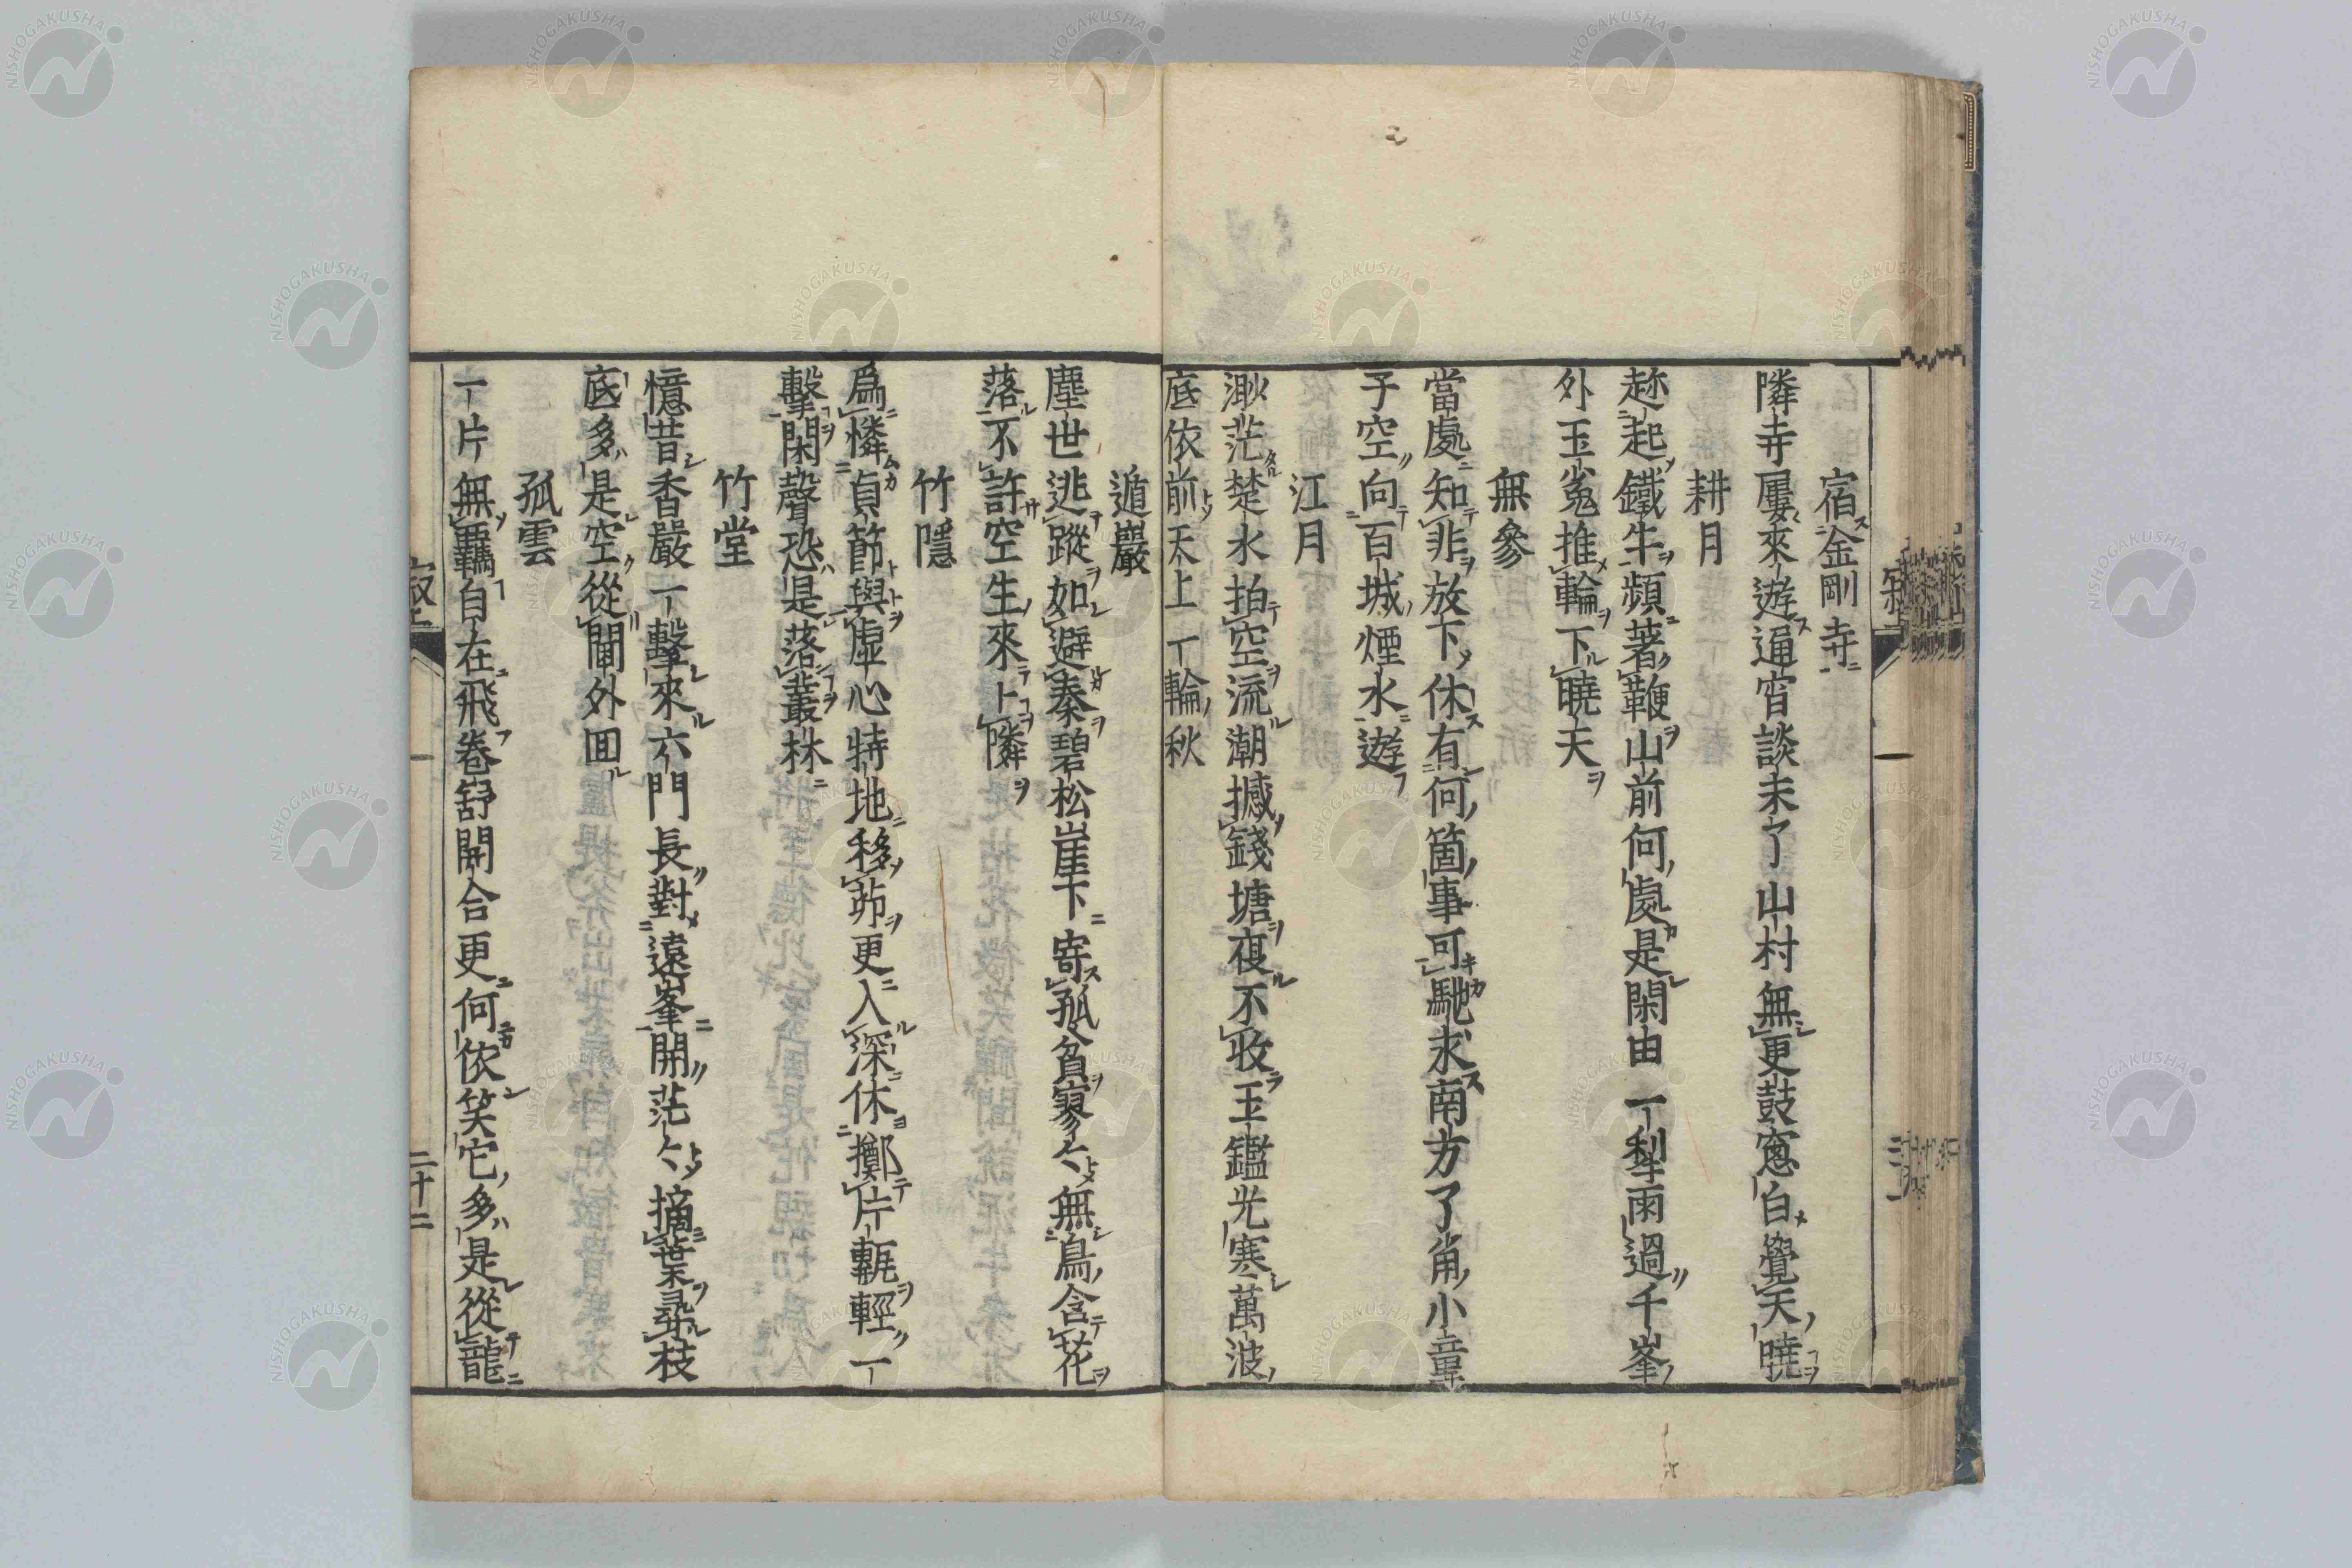 宿金剛寺
隣寺屢來遊逼宵談未了山村無更鼓窓白覺天曉
耕月
趂起鐵牛頻著鞭山前何處是閑由一犁雨過千峯
外玉兔推輪下曉天
無參
當處知非放下休有何箇事可馳求南方了角小童
子空向百城煙水遊
江月
渺茫楚水拍空流潮撼錢塘夜不收玉鑑光寒萬波
底依前天上一輪秋
遁巖
塵世逃蹤如避秦碧松崖下寄孤貧寥々無鳥含花
落不許空生來卜隣
竹隱
爲憐貞節與虛心特地移茆更入深休擲片甎輕一
擊閑聲恐是落叢林
竹堂
憶昔香嚴一擊來六門長對遠峯開茫々摘葉尋枝
底多是空從閫外回
孤雲
一片無羈自在飛卷舒開合更何依笑它多是從龍
二十二